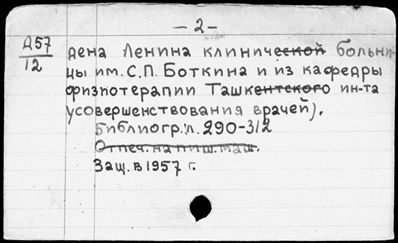 — 2 —
Д57
12
дена Ленина клинической больни-
цы им. С.П. Боткина и из кафедры
физиотерапии Ташкентского ин-та
усовершенствования врачей).
Библиогр: л. 290-312
Отпеч. на пиш. маш.
Защ. в 1957 г.